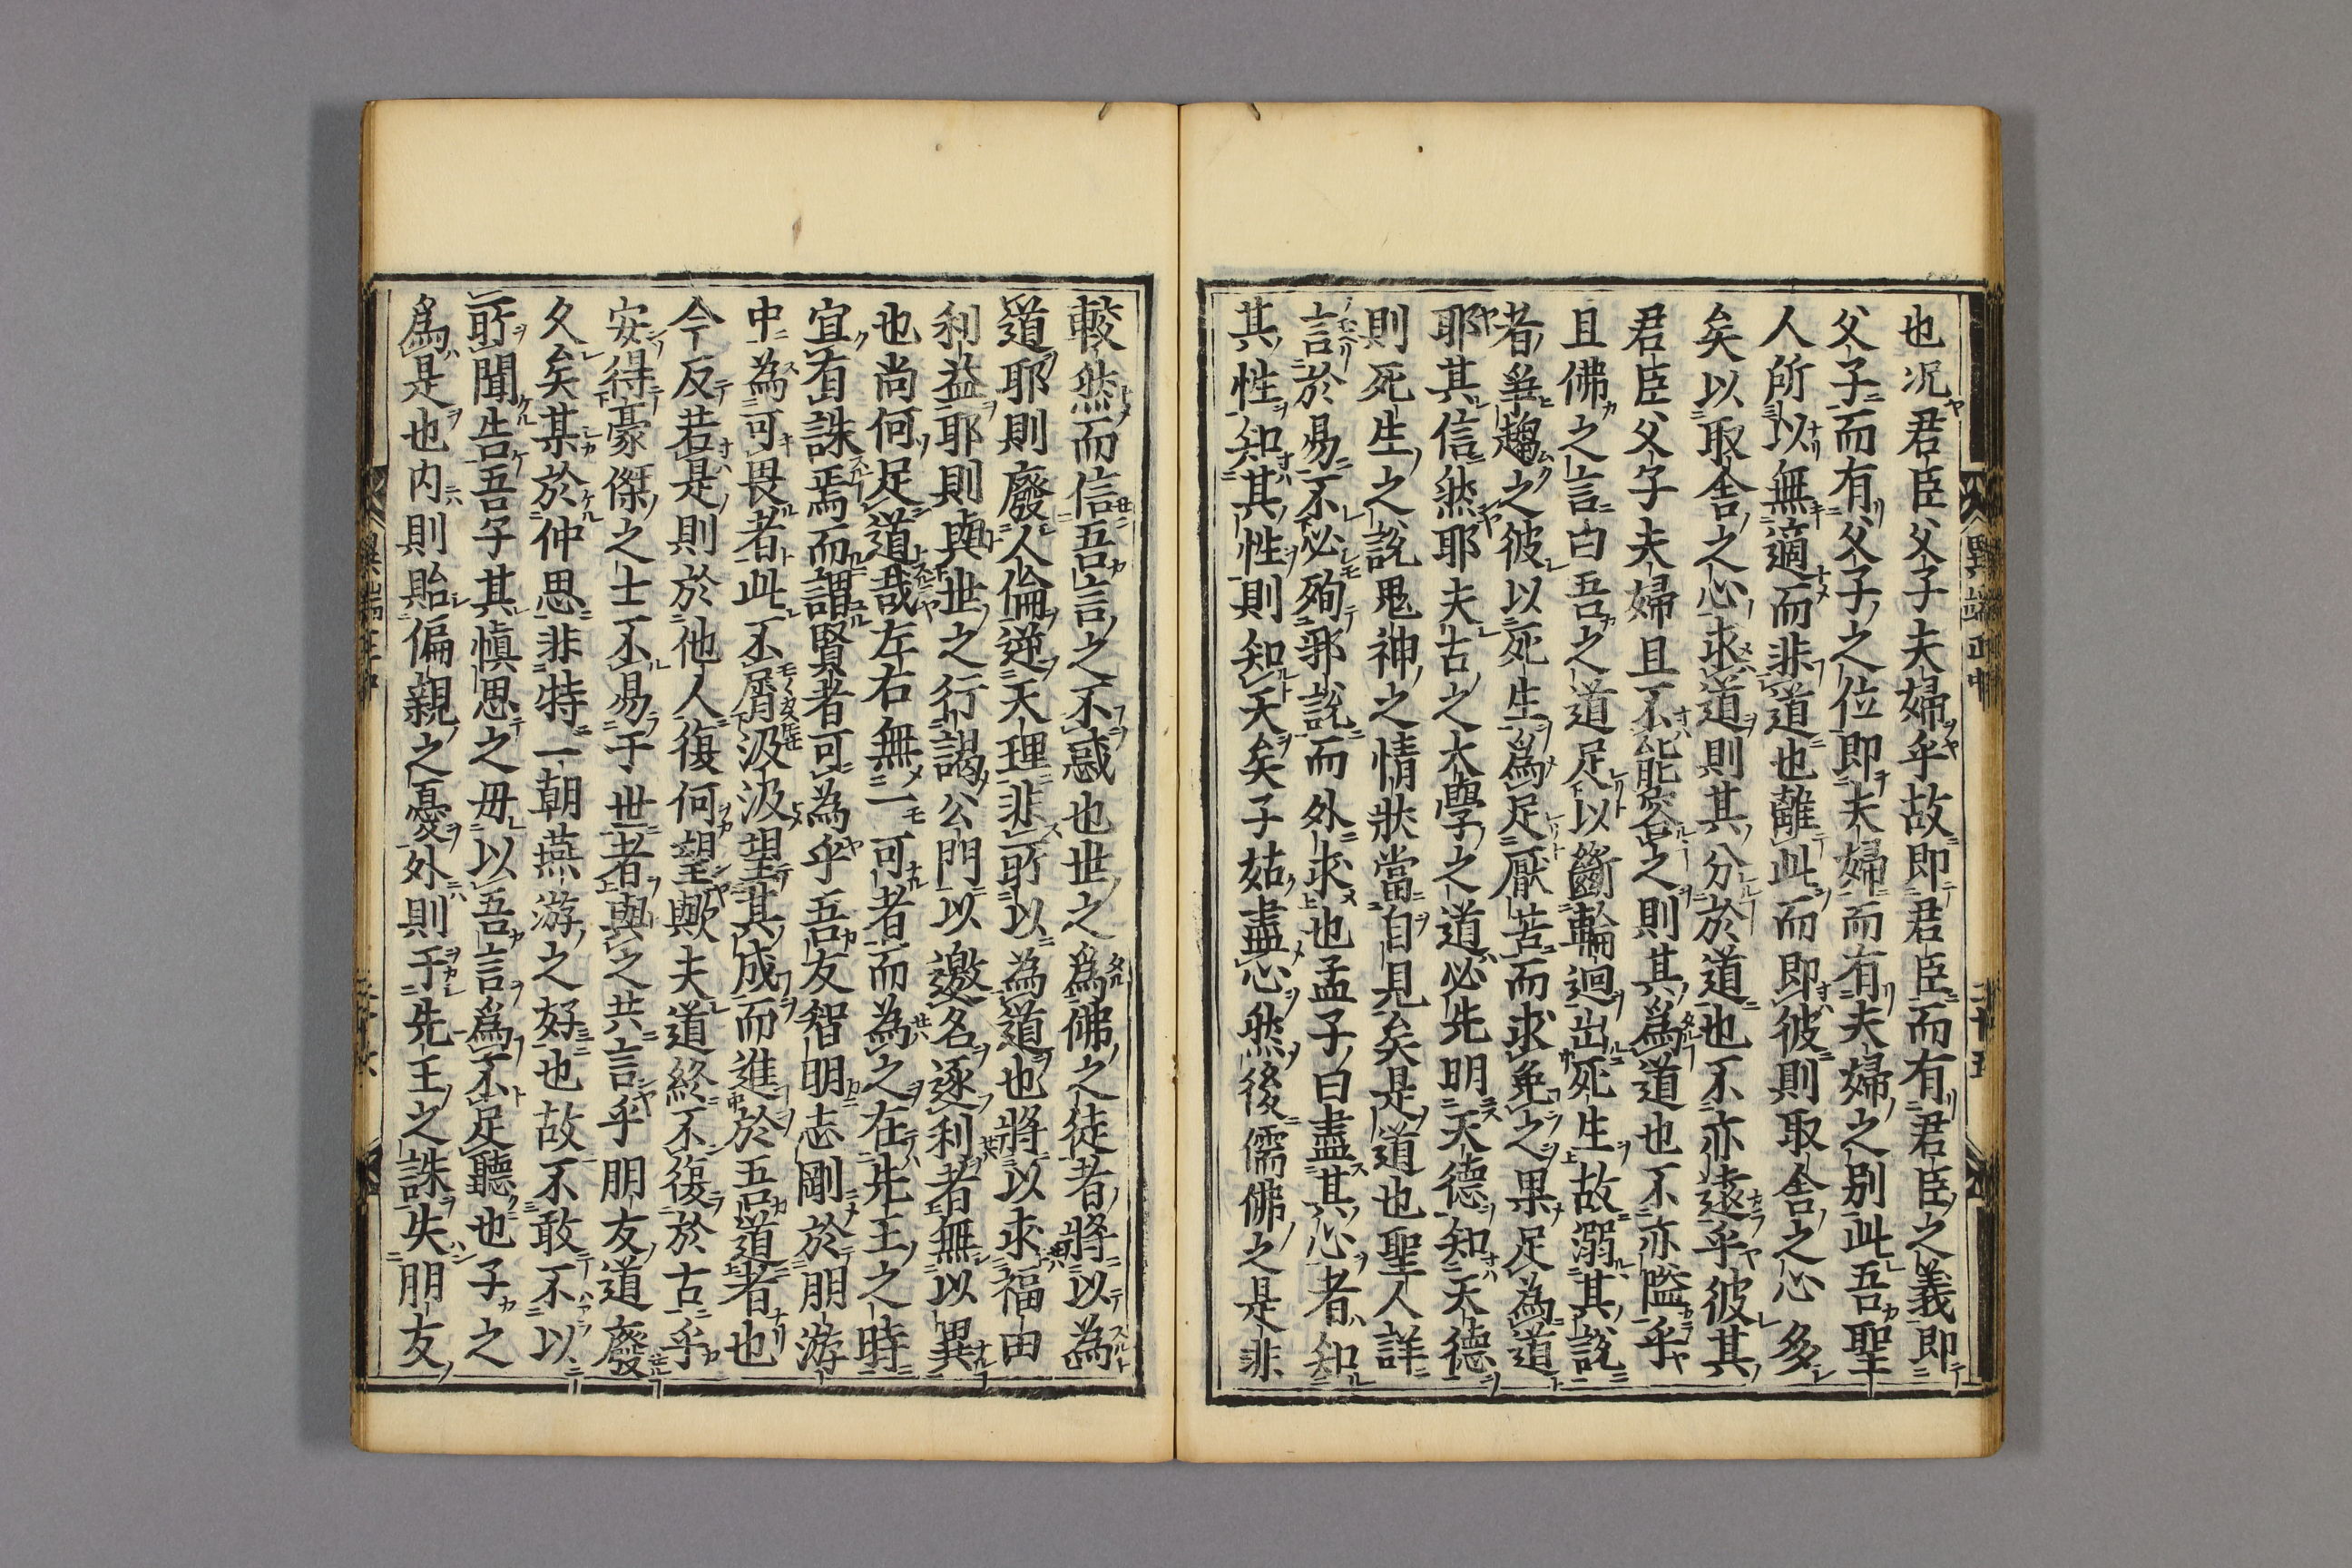 也况君臣父子夫婦乎故即君臣而有君臣之義即
父子而有父子之位即夫婦而有夫婦之别此吾聖
人所以無適而非道也離此而即彼則取舎之心多
矣以取舎之心求道則其分於道也不亦遠乎彼其
君臣父子夫婦且不能容之則其爲道也不亦隘乎
且佛之言曰吾之道足以斷輪迴出死生故溺其說
者爭趨之彼以死生爲足厭苦而求免之果足為道
耶其信然耶夫古之大學之道必先明天德知天德
則死生之說鬼神之情狀當自見矣是道也聖人詳
言於易不必殉邪說而外求也孟子曰盡其心者知
其性知其性則知天矣子姑盡心然後儒佛之是非
異端正中
二十五
較然而信吾言之不惑也世之爲佛之徒者將以為
道耶則廢人倫逆天理非所以為道也將以求福田
利益耶則與世之行謁公門以邀名逐利者無以異
也尚何足道哉左右無一可者而為之在先王之時
宜有誅焉而謂賢者可為乎吾友智明志剛於朋游
中為可畏者此不屑汲汲望其成而進於吾道者也
今反若是則於他人復何望歟夫道終不復於古乎
安得豪傑之士不易于世者與之共言乎朋友道廢
久矣某於仲思非特一朝燕游之好也故不敢不以
所聞告吾子其愼思之毋以吾言爲不足聽也子之
爲是也内則貽偏親之憂外則于先王之誅失朋友